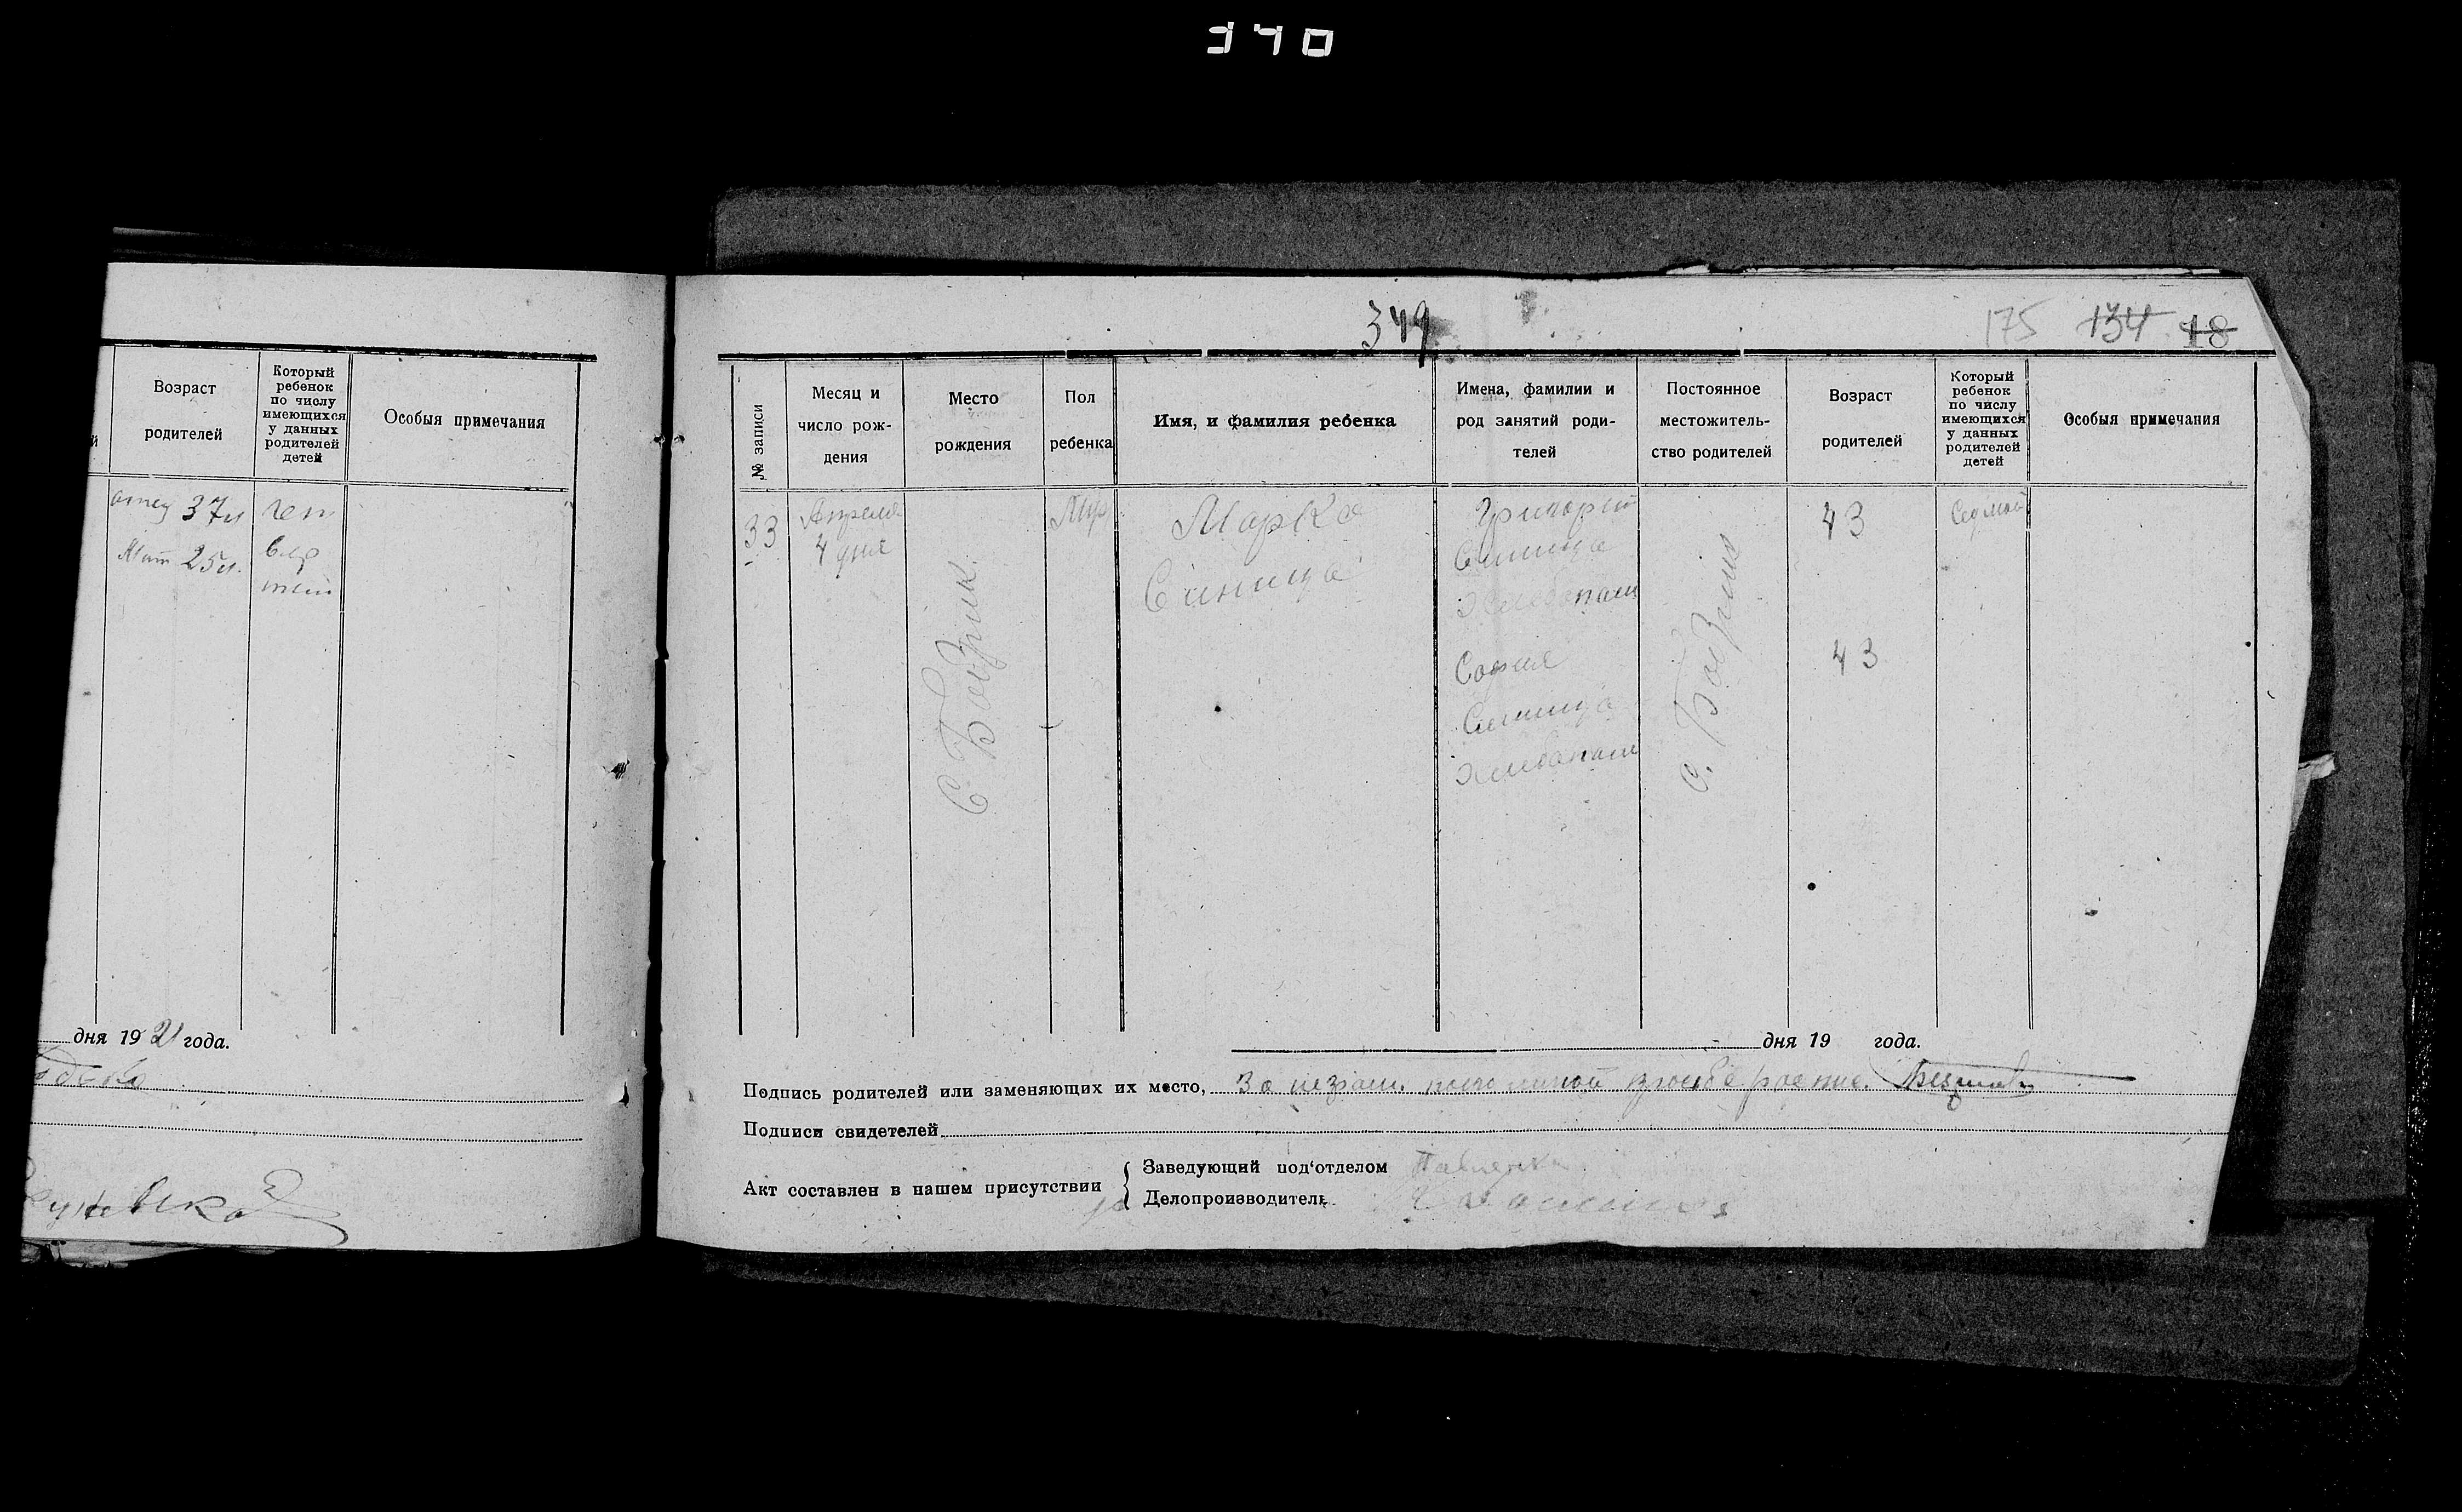 370
Возраст
родителей
Который
ребенок
по числу
имеющихся
у данных
родителей
детей
Особыя примечания
й
отец 37 л
Мат 25 л.
чет
вер
тий
дня 1921 года.
349
175 134 18
№ записи
Месяц и
число рож-
дения
Место
рождения
Пол
ребенка
Имя, и фамилия ребенка
Имена, фамилии и
род занятий роди-
телей
Постоянное
местожитель-
ство родителей
Возраст
родителей
Который
ребенок
по числу
имеющихся
у данных
родителей
детей
Особыя примечания
33
Апреля
4 дня
Марко
Синица
Григорий
Синица
Хлебопаш
София
Синица
Хлебопаш
43
43
Седмой
дня 19 года.
Подпись родителей или заменяющих их место,
Подписи свидетелей
Акт составлен в нашем присутствии
Заведующий под‘отделом
Делопроизводитель